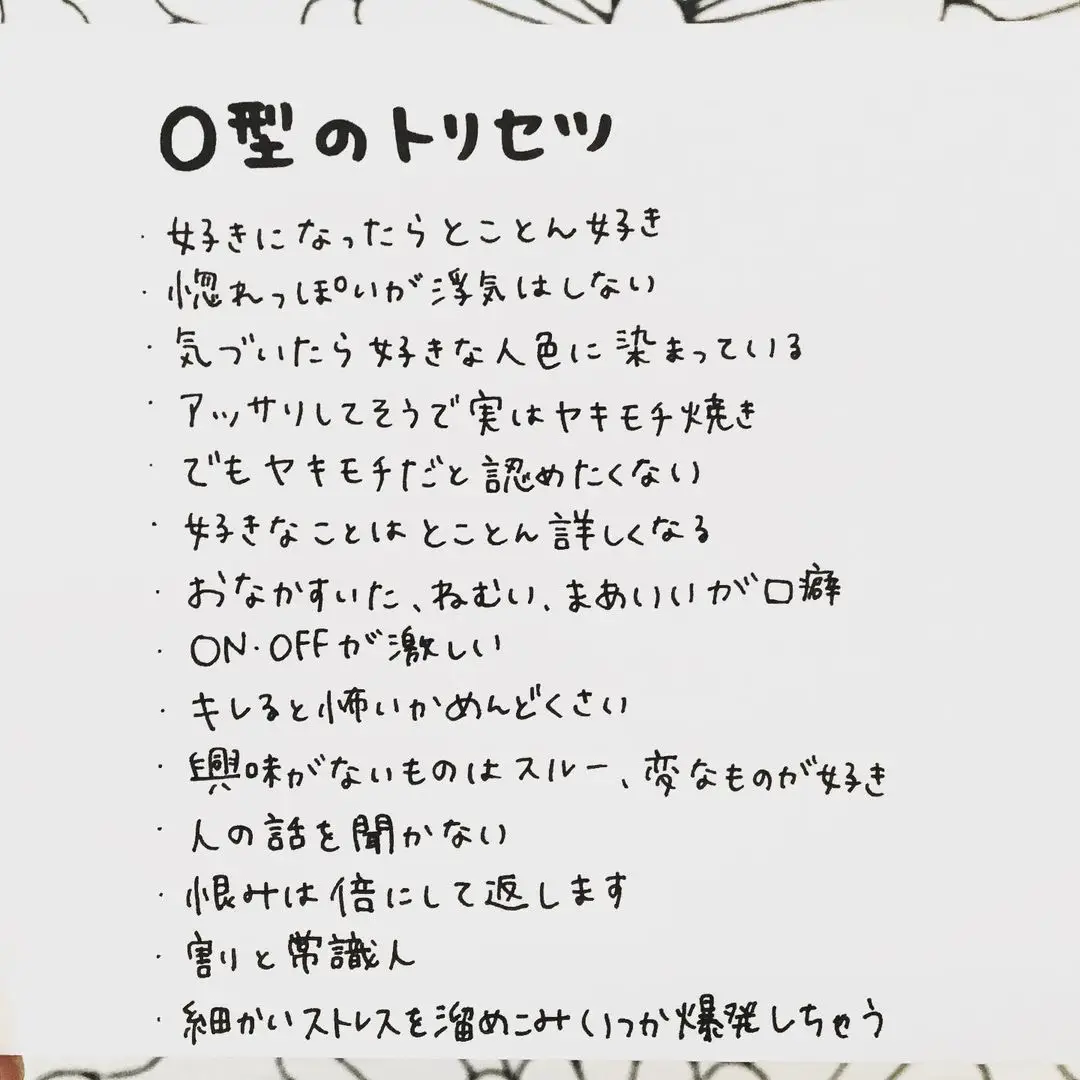 O型のトリセツ
・好きになったらとことん好き
・惚れっぽいが浮気はしない
・気づいたら好きな人色に染まっている
・アッサリしてそうで実はヤキモチ焼き
・でもヤキモチだと認めたくない
・好きなことはとことん詳しくなる
・おなかすいた、ねむい、まあいいが口癖
・ON・OFFが激しい
・キレると怖いかめんどくさい
・興味がないものはスルー、変なものが好き
・人の話を聞かない
・恨みは倍にして返します
・割りと常識人
・細かいストレスを溜めこみいつか爆発しちゃう